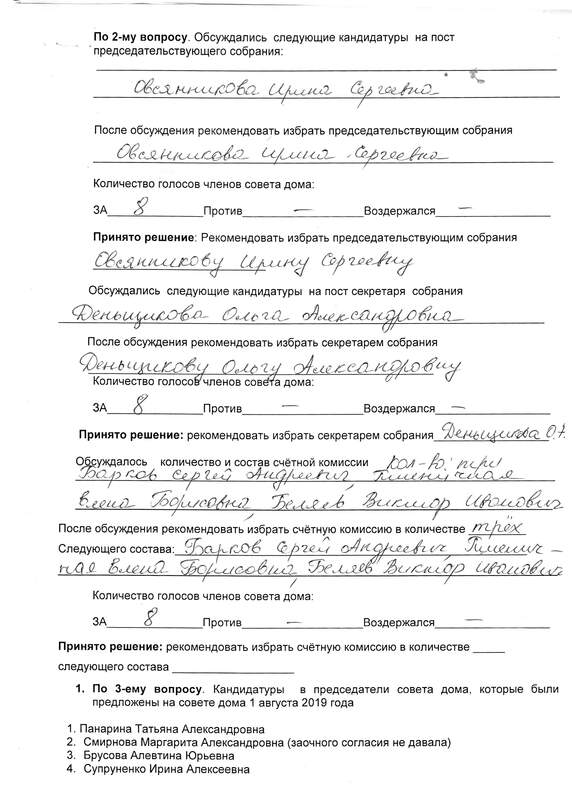 По 2-му вопросу. Обсуждались следующие кандидатуры на пост
председательствующего собрания:
Овсянникова Ирина Сергеевна
После обсуждения рекомендовать избрать председательствующим собрания
Овсянникова Ирина Сергеевна
Количество голосов членов совета дома:
ЗА 8 Против — Воздержался —
Принято решение: Рекомендовать избрать председательствующим собрания
Овсянникову Ирину Сергеевну
Обсуждались следующие кандидатуры на пост секретаря собрания
Деньщикова Ольга Александровна
После обсуждения рекомендовать избрать секретарем собрания
Деньщикову Ольгу Александровну
Количество голосов членов совета дома:
ЗА 8 Против — Воздержался —
Принято решение: рекомендовать избрать секретарем собрания Деньщикова О.А.
Обсуждалось количество и состав счётной комиссии кол-во: три
Барков Сергей Андреевич, Пшеничная
Елена Борисовна, Беляев Виктор Иванович
После обсуждения рекомендовать избрать счётную комиссию в количестве трёх
Следующего состава: Барков Сергей Андреевич, Пшенич-
ная Елена Борисовна, Беляев Виктор Иванович
Количество голосов членов совета дома:
ЗА 8 Против — Воздержался —
Принято решение: рекомендовать избрать счётную комиссию в количестве _____
следующего состава ____________________
1. По 3-ему вопросу. Кандидатуры в председатели совета дома, которые были
предложены на совете дома 1 августа 2019 года
1. Панарина Татьяна Александровна
2. Смирнова Маргарита Александровна (заочного согласия не давала)
3. Брусова Алевтина Юрьевна
4. Супруненко Ирина Алексеевна